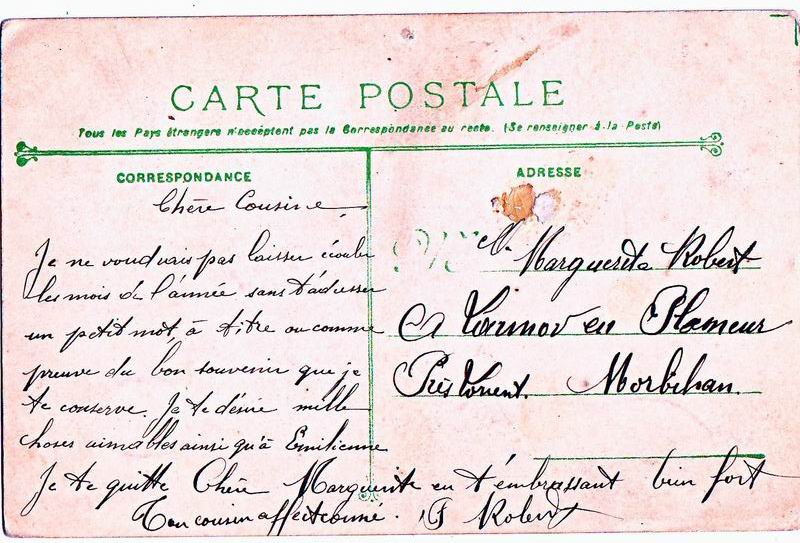 CARTE POSTALE
Tous les Pays étrangers n'acceptent pas la Correspondance au recto. (Se renseigner à la Poste)
CORRESPONDANCE
Chère Cousine
Je ne voudrais pas laisser écouler
les mois de l'année sans t'adresser
un petit mot à titre ou comme
preuve du bon souvenir que je
te conserve. Je te désire mille
choses aimables ainsi qu'à Emilienne
Je te quitte Chère Marguerite en t'embrassant bien fort
Ton cousin affectionné. Robert
ADRESSE
M
Marguerite Robert
A en Plœmeur
Près Lorient. Morbihan.